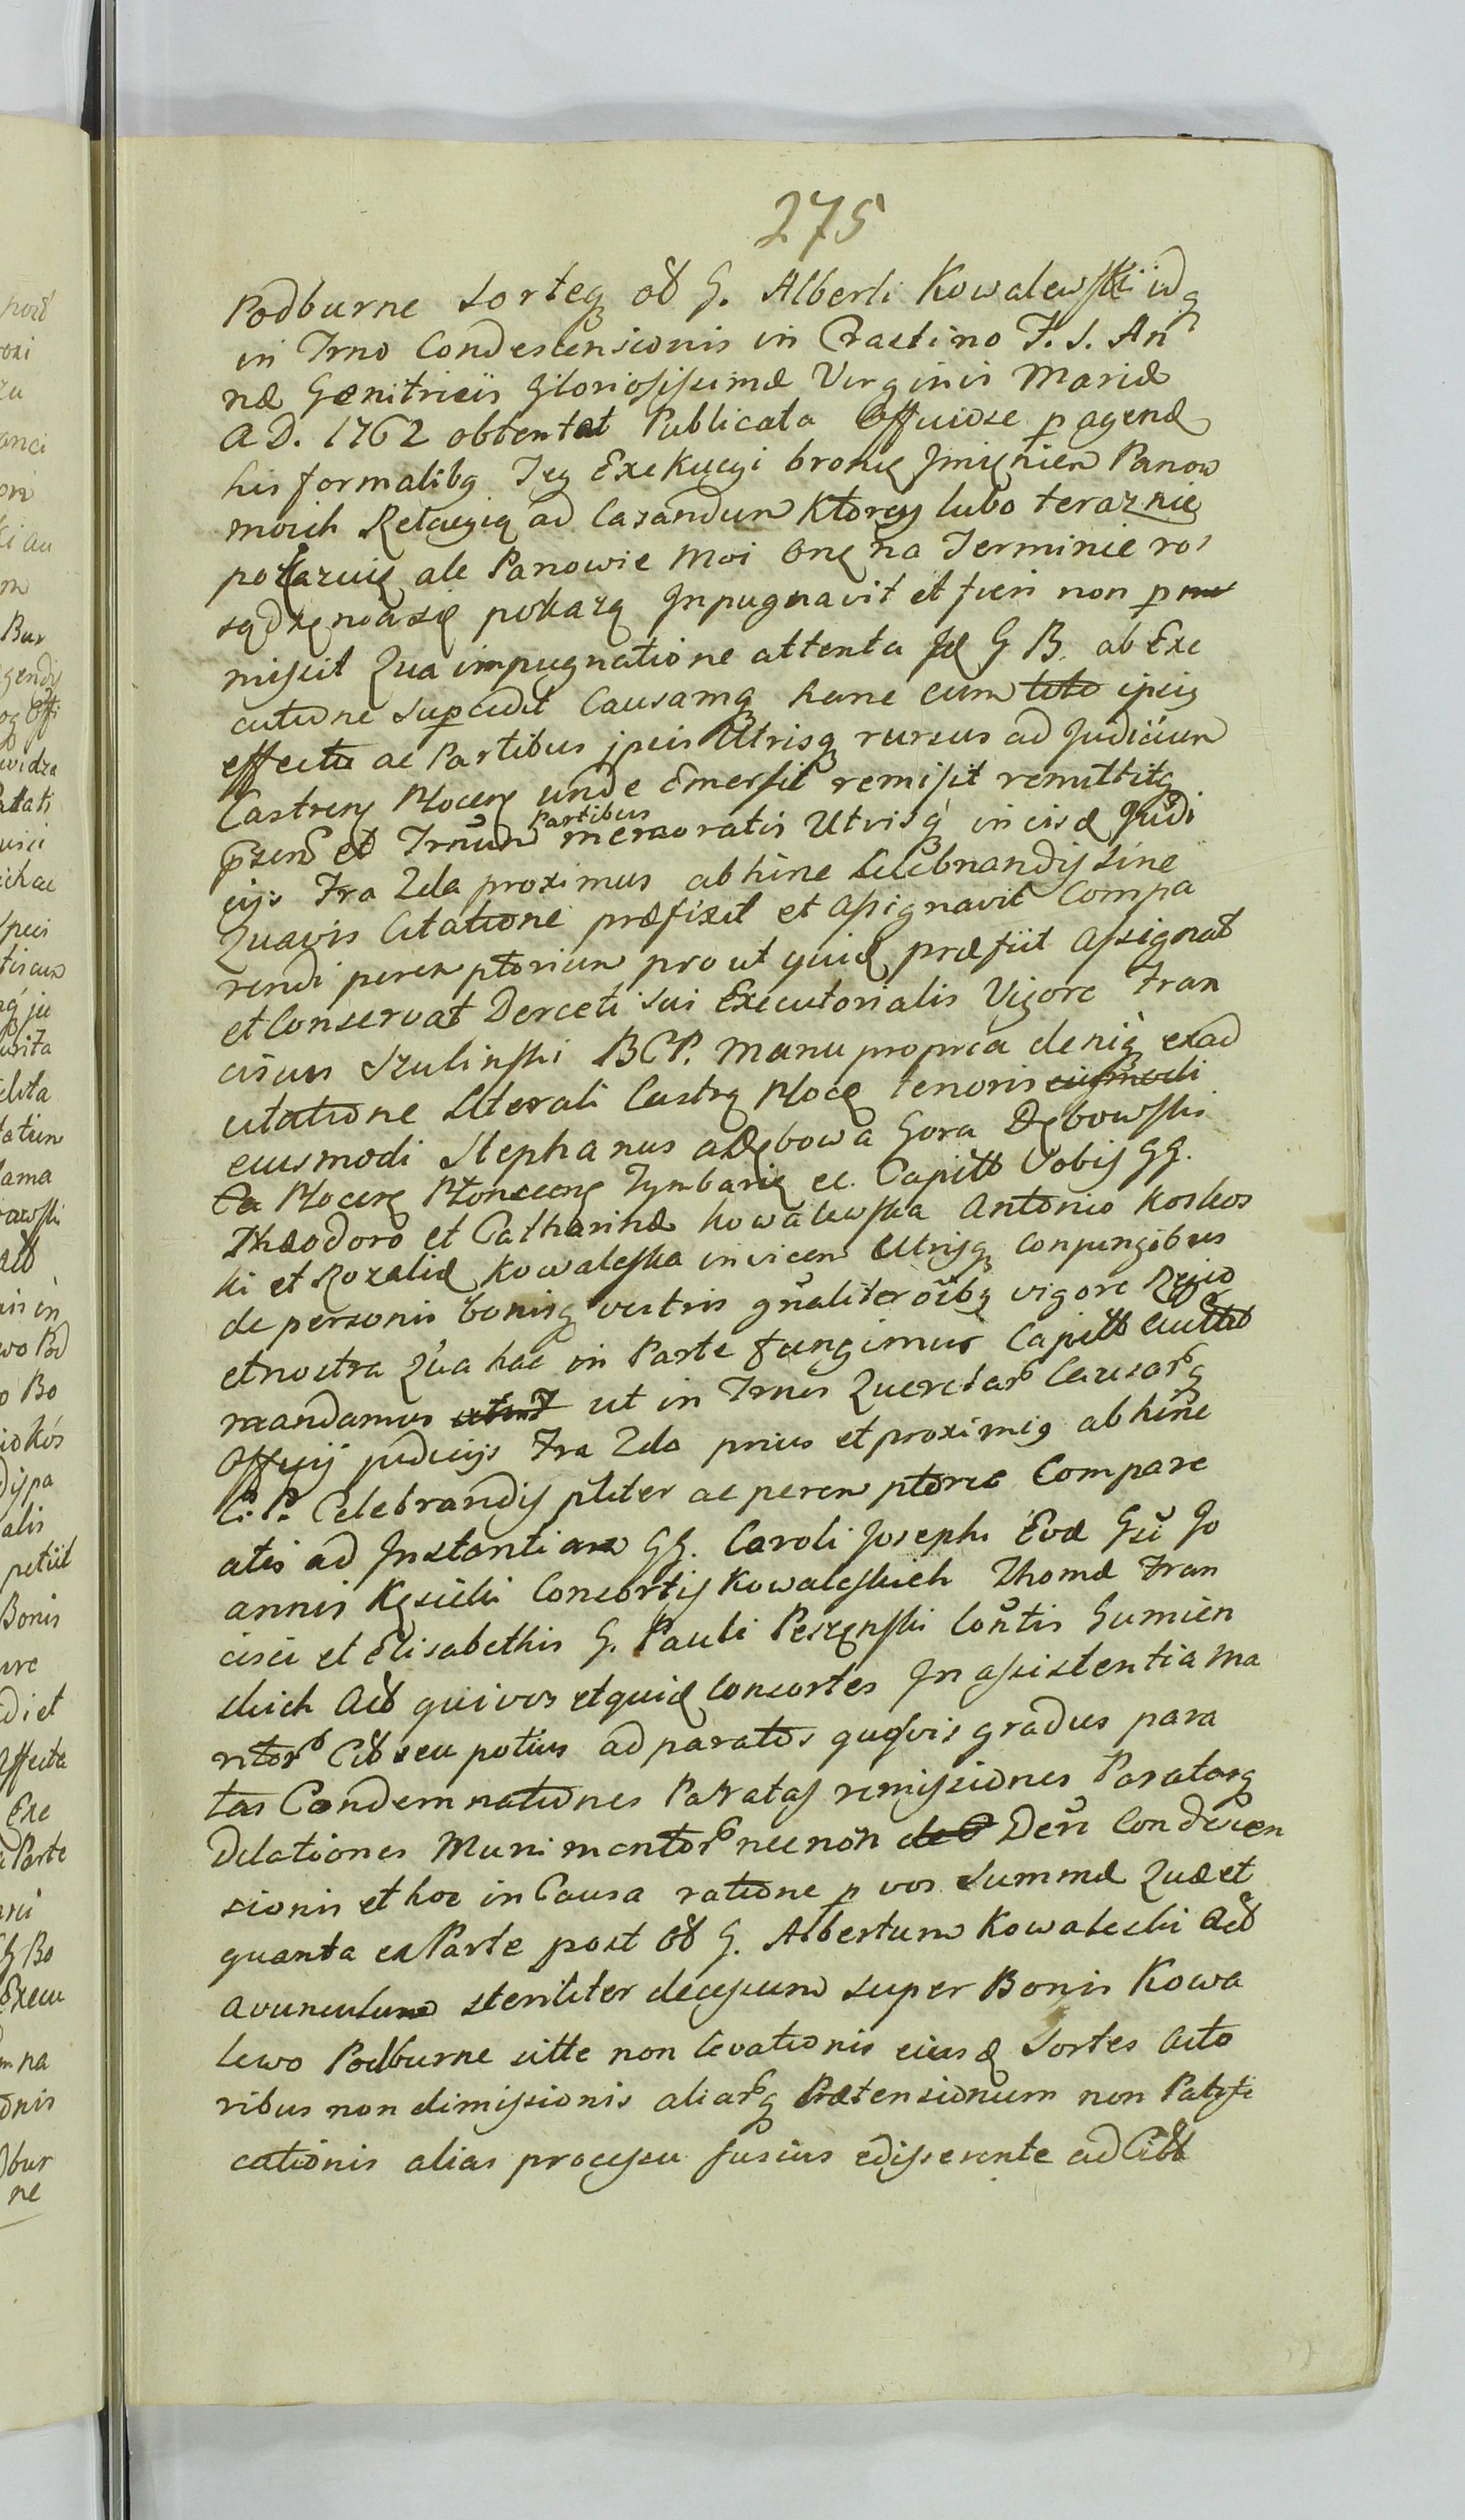 275
Podburne Sorteq olt G. Alberti Kowalewski idq
in Trno Condescensionis in Crastino F. S. An
næ Gænitricis Gloriosissimæ Virginis Mariæ
A D. 1762 obtentat Publicata Officiose p agendæ
his formalibq Tey Exekucyi bronię Jmięniem Panow
moich Relacyią ad Casandum Ktorey lubo teraz nie
pokazuię ale Panowie Moi onę na Terminie ros
sądzęnia się pokazą Jnpugnavit et fieri non p
misit Qua impugnatione attenta G B. ab Exe
cutione supcedit Causamq hanc cum toto ipsiq
effectu ac Partibus jpsis Utrisq rursus ad Judicium
Castrenę Plocenę unde Emersit remisit remittitq
Partibus
pzend et Trnum memoratis Utrisq in eisd Judi
cijs Fra 2da proximus abhinc Celebrandis sine
Quavis Citatione præfixit et assignavit Compa
rendi peremptorium prout quid præfiit Assignat
et Conservat Derceti sui Executorialis Vigore Fran
ciscus Szulinski BCP. Manu propria deniq exad
citatione Literali Castrę Plocę tenoris eiusmodi
eiusmodi Stephanus a Dębowa Gora Dębowski
Ca Plocenę Płonscenę Zymbarię ec. Capitt Vobis GG.
Theodoro et Catharinæ Kowalewska Antonio Koskos
ki et Rozaliæ Kowaleska invicem Utrisq Conjungibus
de personis bonisq vestris gnaliter oibq vigore Regio
et nostra Qua hac in Parte fungimur Capitt
mandamus ut in Trnis Querelar Causarq
Officij judicijs Fra 2da prius et proximiq abhinc
C. P. Celebrandis pliter ac peremptorie Compare
atis ad Jnstantiam GG. Caroli Josephi Evæ Gsi Jo
annis Kęsicki Consortis Kowaleskich Thomæ Fran
cisci et Elisabethis G. Pauli Peszęnski Contis Gumien
skich Actt qui vos et quid Consortes Jn assistentia Ma
ritor Citt seu potius ad paratos quosvis gradus para
tas Condemnationes Paratas remissiones Paratasq
Delationes Munimentor nec non Deri Condescen
sionis et hoc in Causa ratione p vos Summæ Quæ et
quanta ex Parte post olt G. Albertum Kowaleski Actt
avunculum steriliter decessum super Bonis Kowa
lewo Podburne sitte non levationis eiusd Sortes Acto
ribus non dimissionis aliarq Prætensionum non Patifi
cationis alias processu fusius edisserente ad Citt